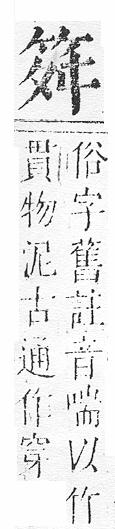 俗字舊註音喘以竹
貫物泥古通作穿